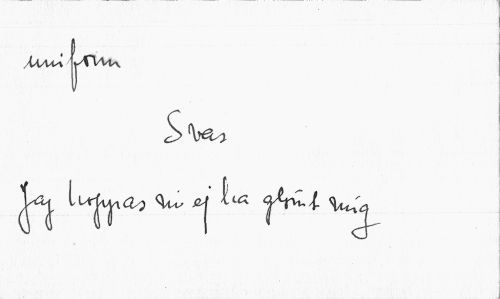 uniform
Svar
Jag hoppas ni ej ha glömt mig